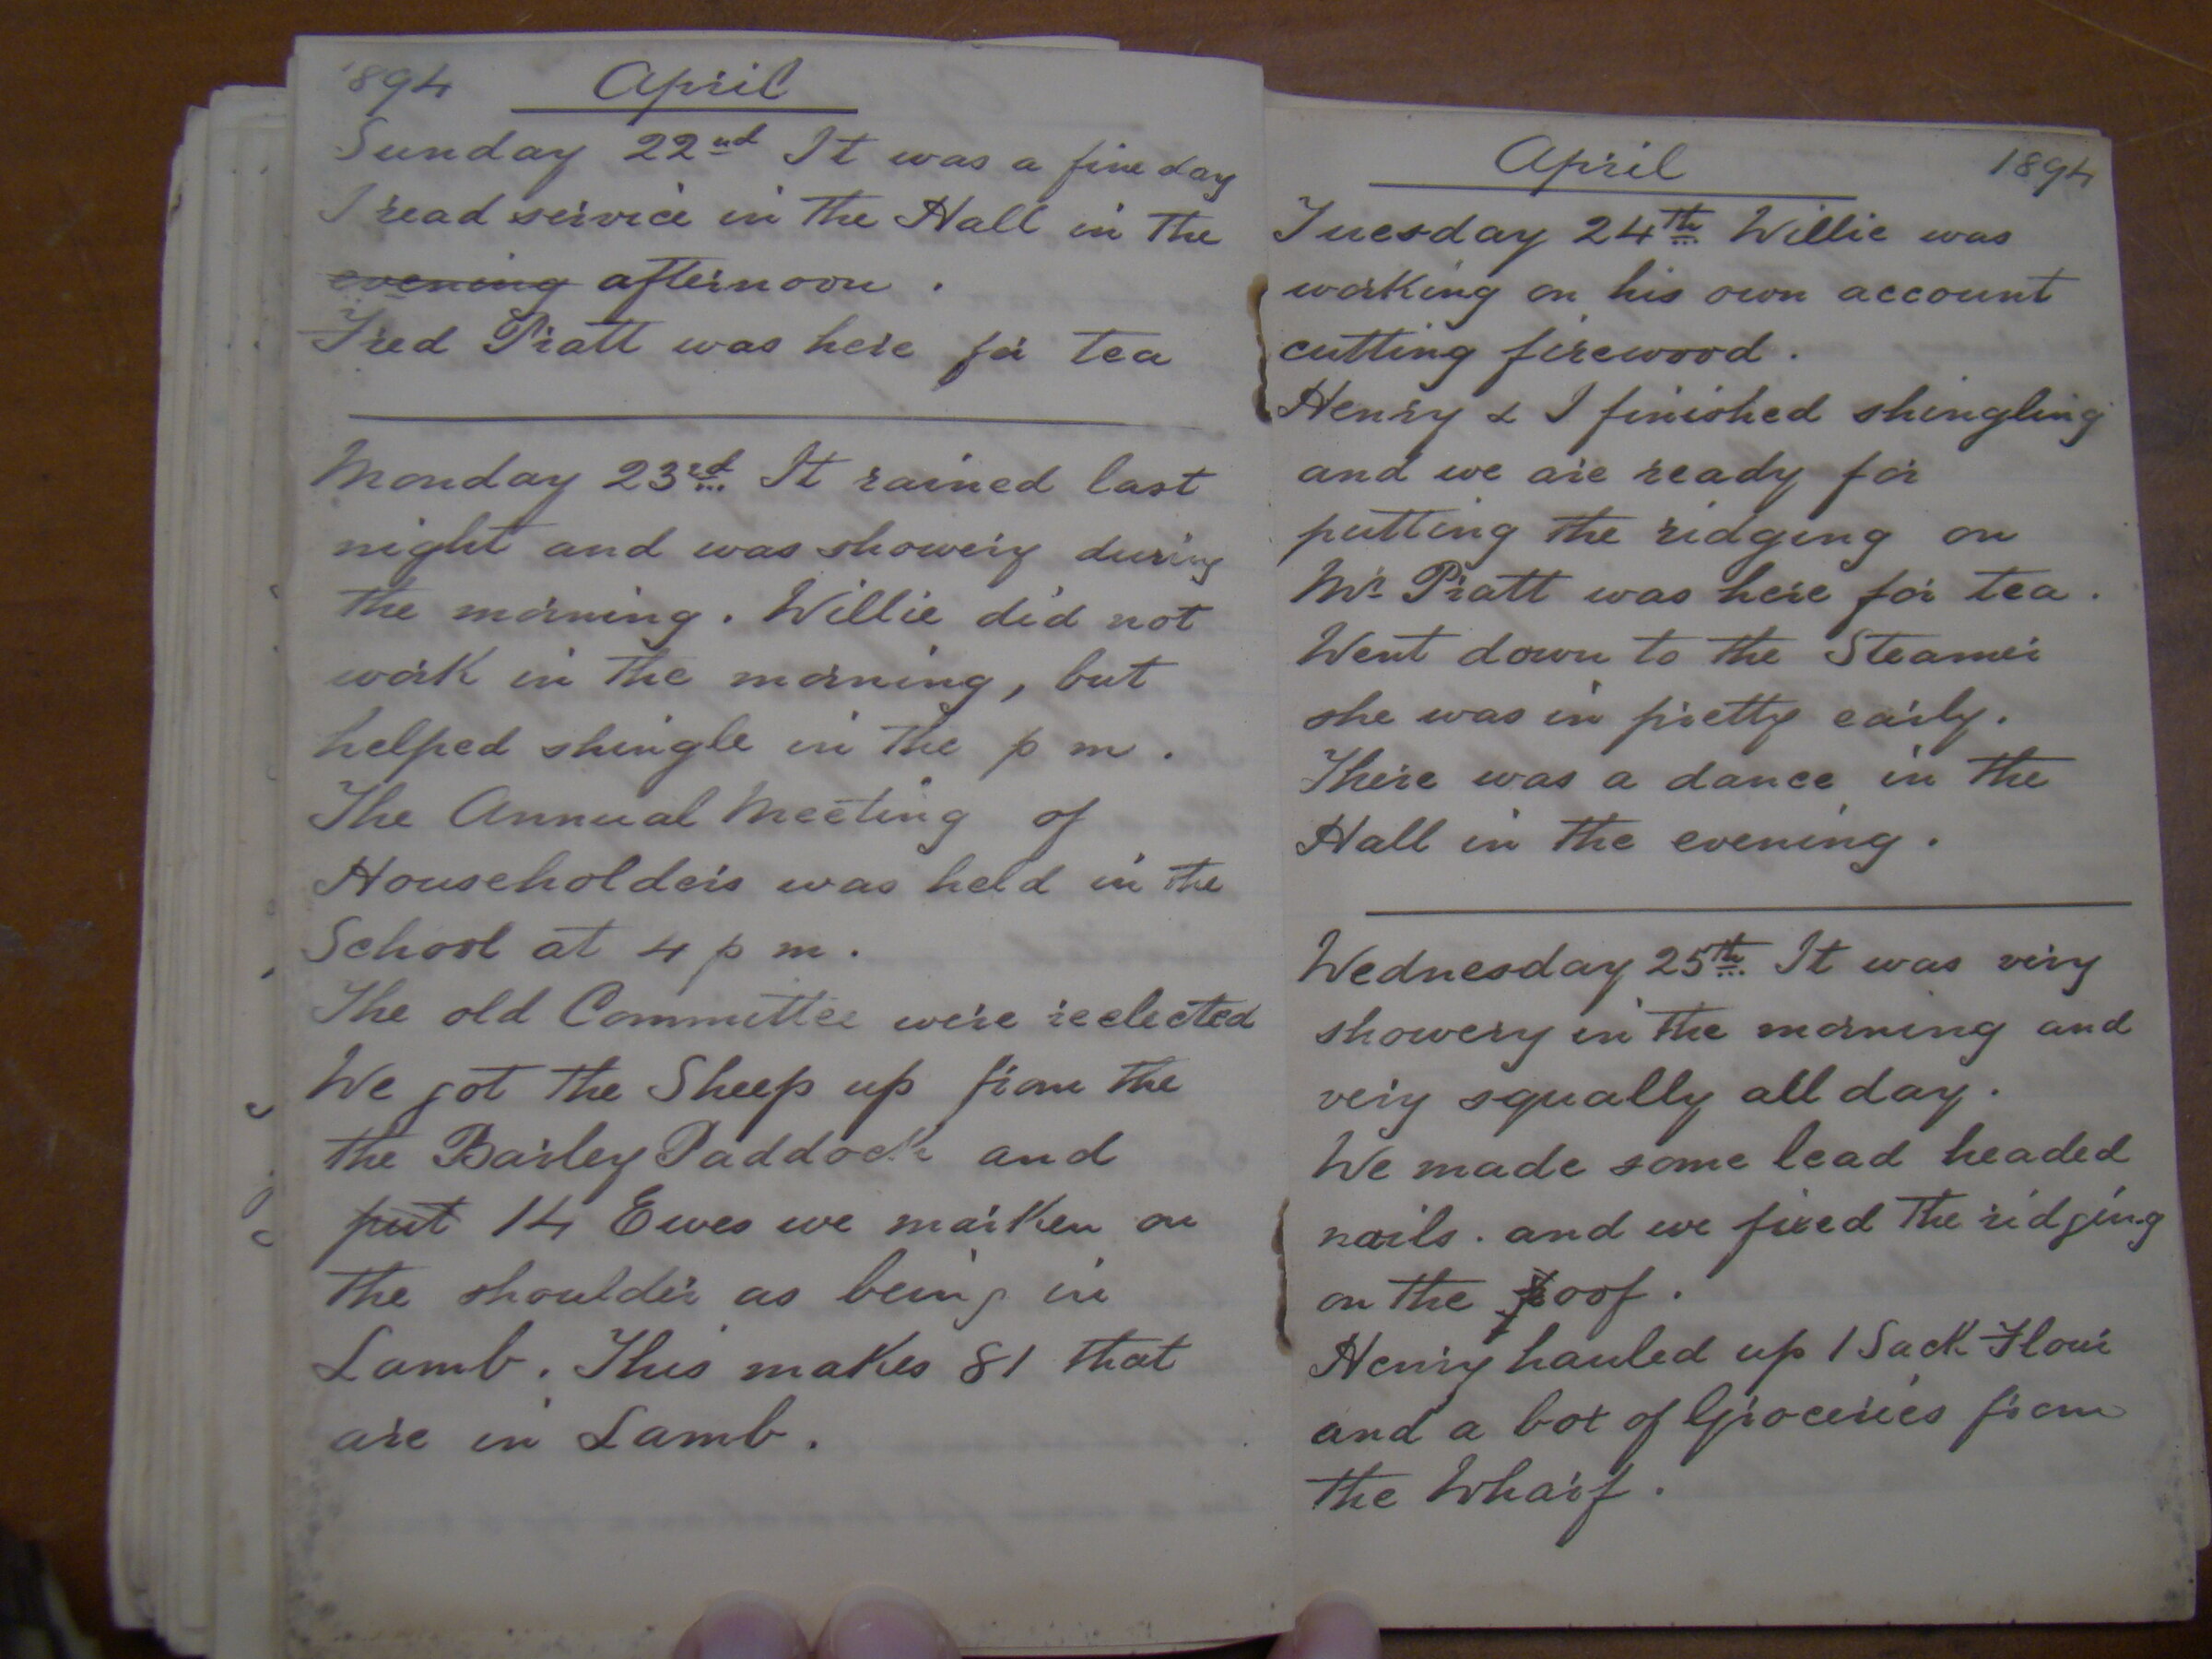 1894 April
Sunday 22nd It was a fine day
I read service in the Hall in the
evening afternoon .
Fred Pratt was here for tea
Monday 23rd It rained last
night and was showery during
the morning . Willie did not
work in the morning , but
helped shingle in the p m .
The Annual Meeting of
Householders was held in the
School at 4 p m .
The old Committee were reelected
We got the Sheep up from the
the Barley Paddock and
put 14 Ewes we marken on
the shoulder as being in
Lamb . This makes 81 that
are in Lamb .
April 1894
Tuesday 24th Willie was
working on his own account
cutting firewood .
Henry & I finished shingling
and we are ready for
putting the ridging on
Mr Pratt was here for tea .
Went down to the Steamer
she was in pretty early .
There was a dance in the
Hall in the evening .
Wednesday 25th It was very
showery in the morning and
very squally all day .
We made some lead headed
nails . and we fixed the ridging
on the roof .
Henry hauled up 1 Sack Flour
and a box of Groceries from
the Wharf .